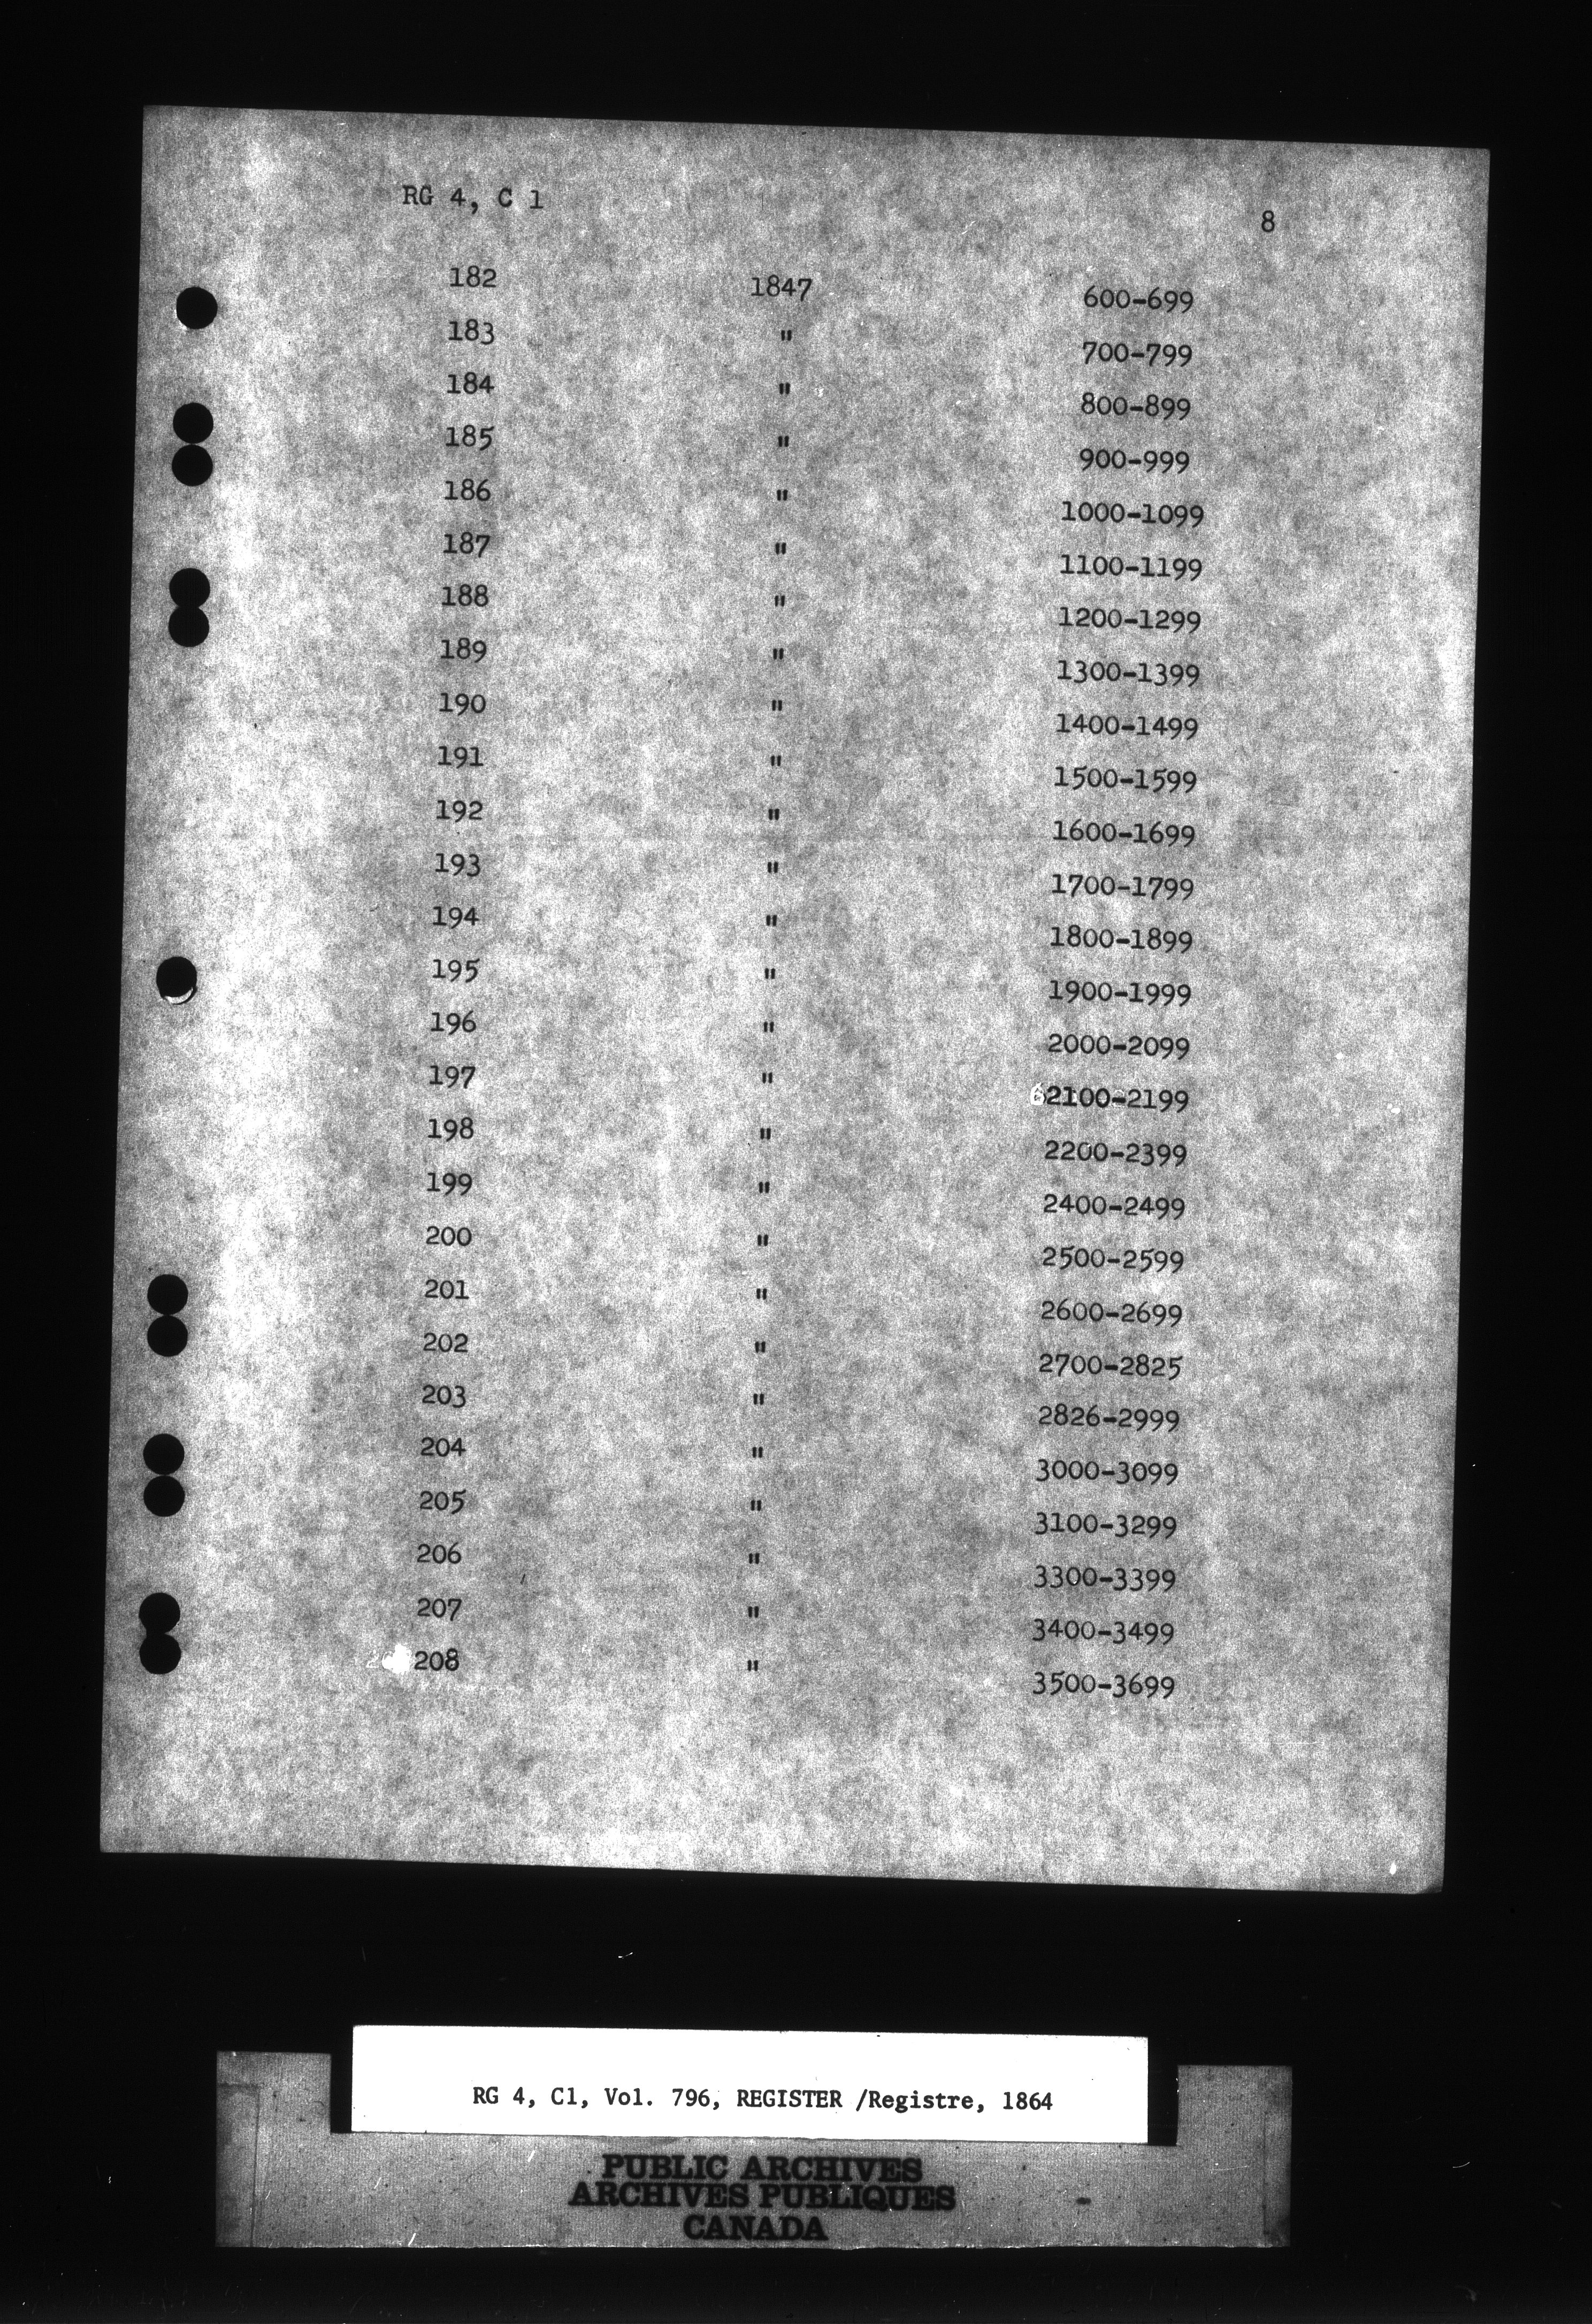 RG 4, C 1
8
182 1847 600-699
183 " 700-799
184 " 800-899
185 " 900-999
186 " 1000-1099
187 " 1100-1199
188 " 1200-1299
189 " 1300-1399
190 " 1400-1499
191 " 1500-1599
192 " 1600-1699
193 " 1700-1799
194 " 1800-1899
195 " 1900-1999
196 " 2000-2099
197 " 2100-2199
198 " 2200-2399
199 " 2400-2499
200 " 2500-2599
201 " 2600-2699
202 " 2700-2825
203 " 2826-2999
204 " 3000-3099
205 " 3100-3299
206 " 3300-3399
207 " 3400-3499
208 " 3500-3699
RG 4, C1, Vol. 796, REGISTER /Registre, 1864
PUBLIC ARCHIVES
ARCHIVES PUBLIQUES
CANADA